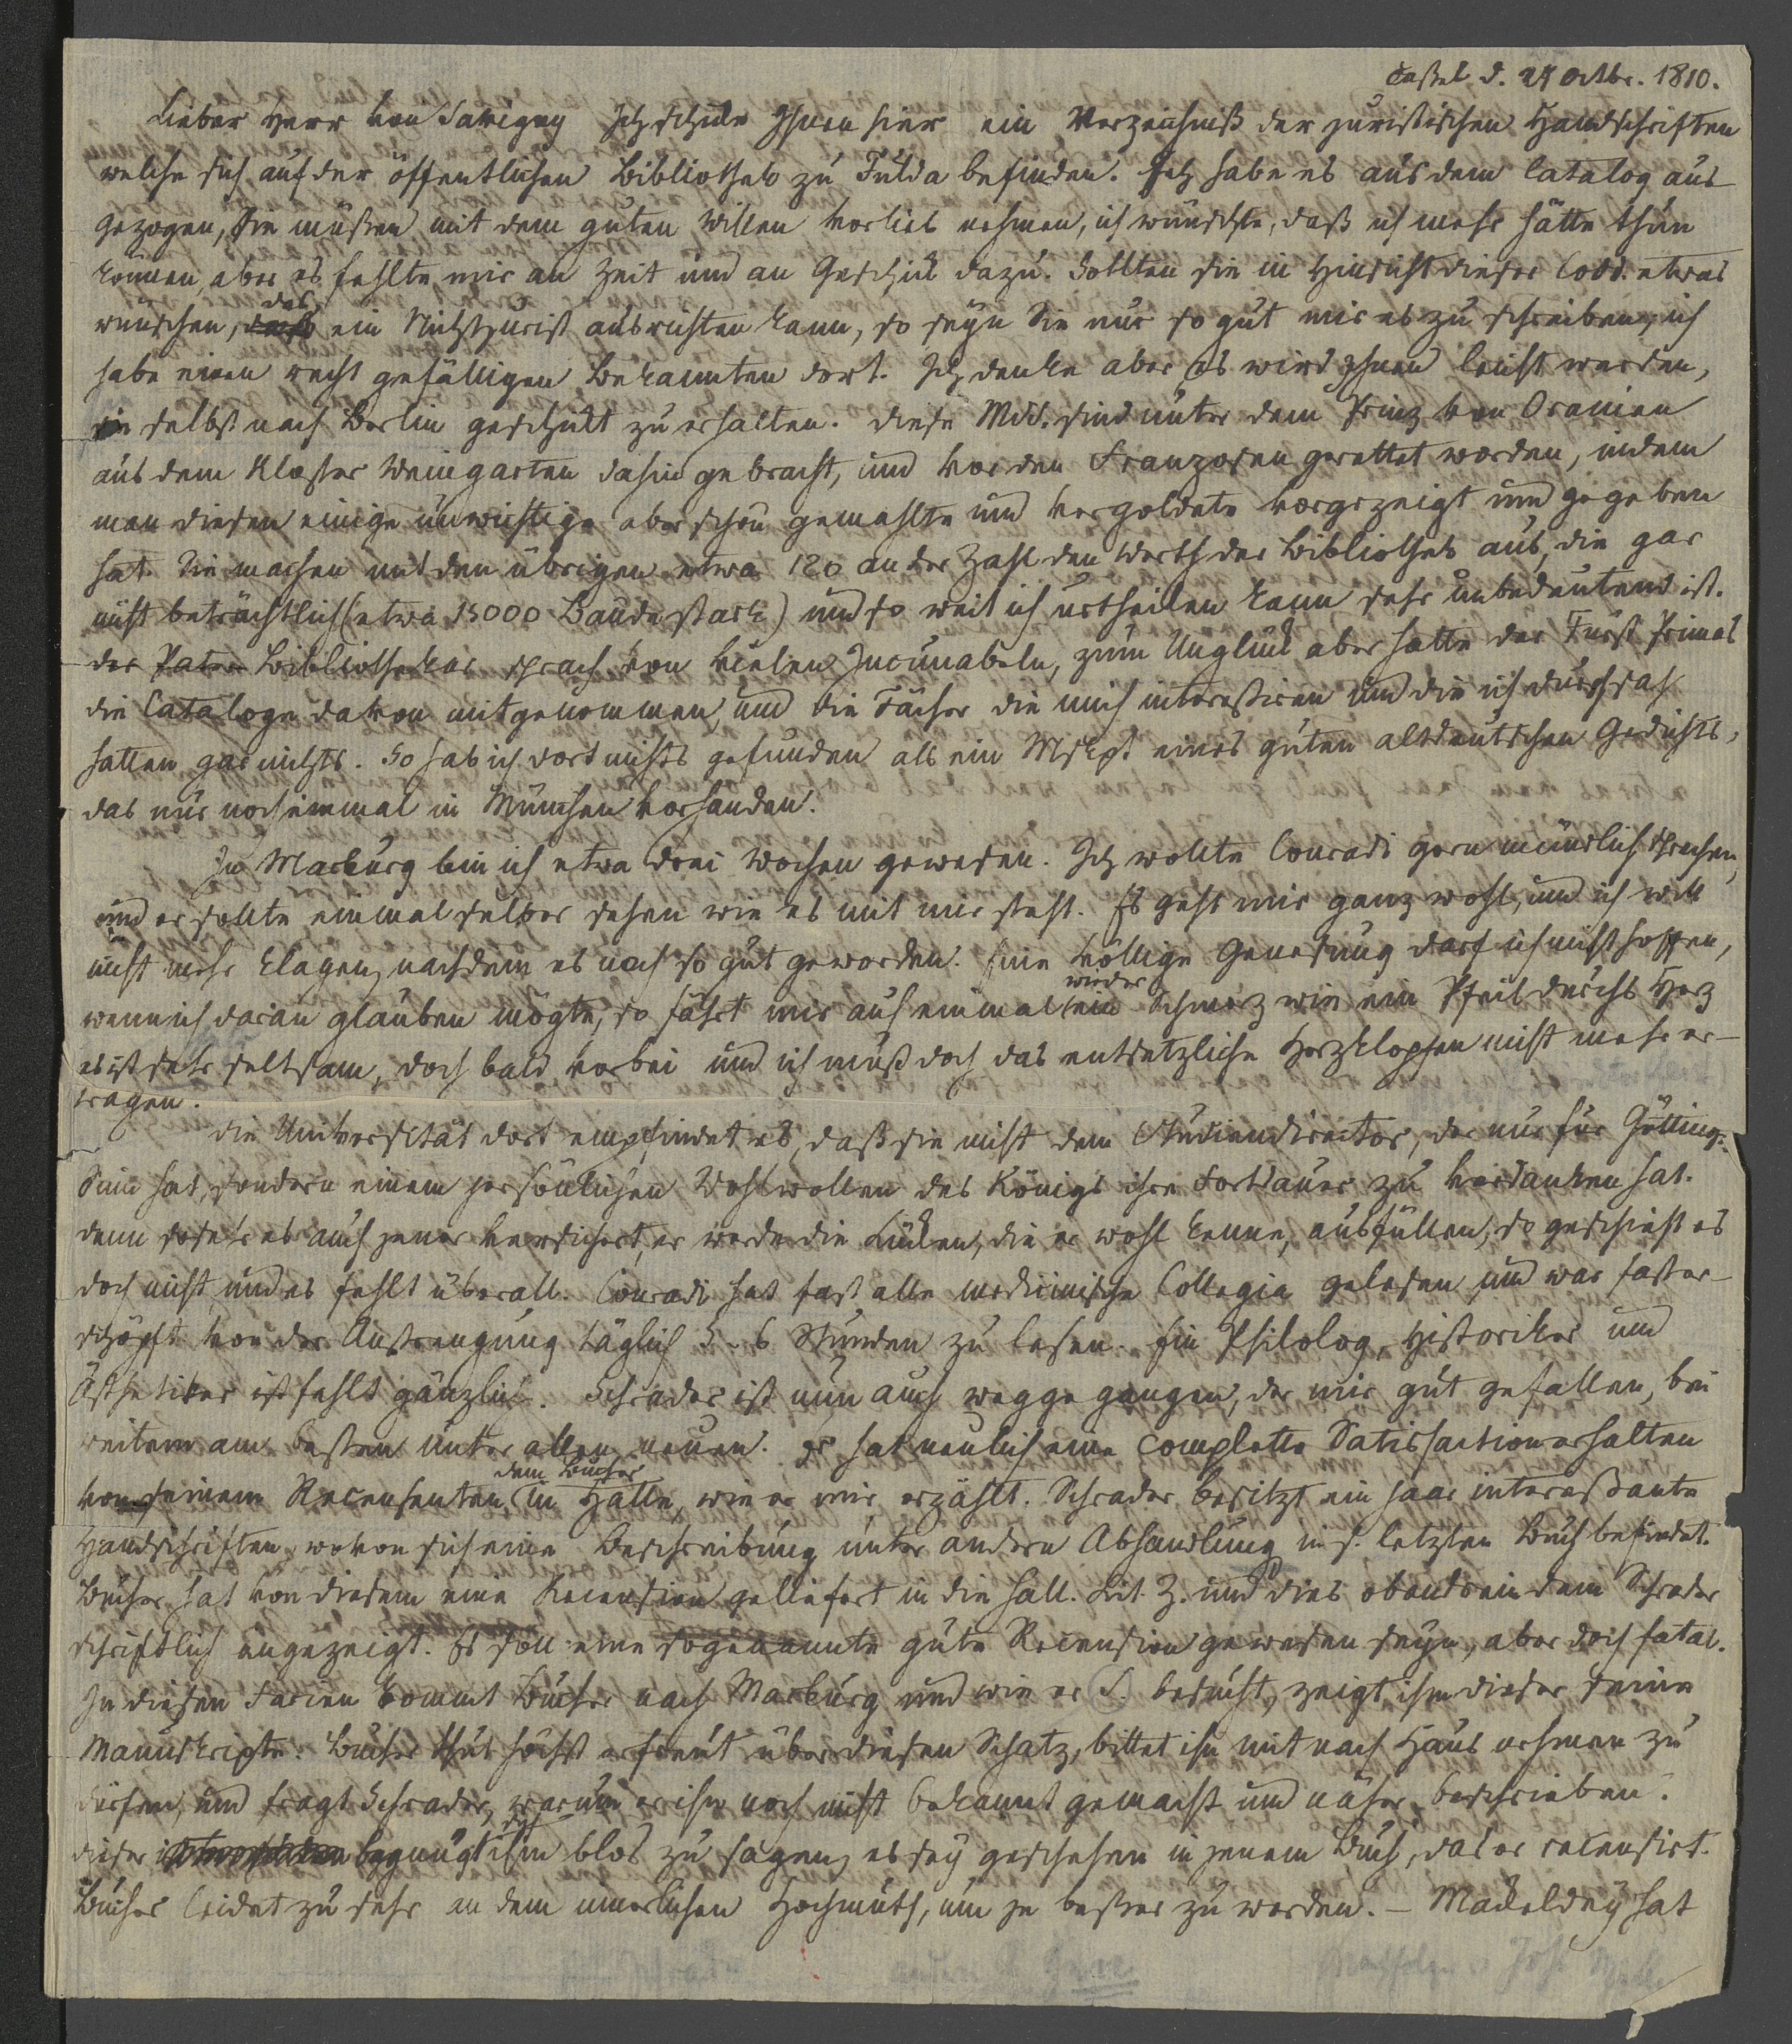 Cassel d. 24 Octbr. 1810.
Lieber Herr von Savigny Ich schicke Ihnen hier ein Verzeichniß der juristischen Handschriften
welche sich auf der öffentlichen Bibliothek zu Fulda befinden. Ich habe es aus dem Catalog aus-
gezogen, Sie müßen mit dem guten Willen vorlieb nehmen, ich wünschte, daß ich mehr hätte thun
können, aber es fehlte mir an Zeit und an Geschick dazu. Sollten Sie in Hinsicht dieser Codd. etwas
wünschen, das ein Nichtjurist ausrichten kann, so seyn Sie nur so gut mir es zu schreiben, ich
habe einen recht gefälligen Bekannten dort. Ich denke aber es wird Ihnen leicht werden,
sie selbst nach Berlin geschickt zu erhalten. Diese Mss. sind unter dem Prinz von Oranien
aus dem Kloster Weingarten dahin gebracht, und vor den Franzosen gerettet worden, indem
man diesen einige unwichtige aber schön gemahlte und vergoldete vorgezeigt und gegeben
hat. Sie machen mit den übrigen etwa 120 an der Zahl den Werth der Bibliothek aus, die gar
nicht beträchtlich (etwa 15000 Bände stark) und so weit ich urtheilen kann sehr unbedeutend ist.
der Pater Bibliothekar sprach von vielen Incunabeln, zum Unglück aber hatte der Fürst Primas
die Cataloge davon mitgenommen, und die Fächer die mich interessiren und die ich durchsah
hatten gar nichts. So hab ich dort nichts gefunden als ein Mscpt eines guten altdeutschen Gedichts,
das nur noch einmal in München vorhanden.
In Marburg bin ich etwa drei Wochen gewesen. Ich wollte Conradi gern mündlich sprechen,
und er sollte einmal selber sehen wie es mit mir steht. Es geht mir ganz wohl, und ich will
nicht mehr klagen, nachdem es noch so gut geworden. Eine völlige Genesung darf ich nicht hoffen,
wenn ich daran glauben mögte, so fährt mir auf einmal wieder ein Schmerz wie ein Pfeil durchs Herz
es ist sehr seltsam, doch bald vorbei und ich muß doch das entsetzliche Herzklopfen nicht mehr er-
tragen.
die Universität dort empfindet es, daß sie nicht dem Studiendirector, der nur für Götting.
Sinn hat, sondern einem persönlichen Wohlwollen des Königs ihre Fortdauer zu verdanken hat.
denn so sehr es auch jener versichert, er werde die Lücken, die er wohl kenne, ausfüllen, so geschieht es
doch nicht und es fehlt überall. Conradi hat fast alle medicinische Collegia gelesen und war fast er-
schöpft von der Anstrengung täglich 5-6 Stunden zu lesen. Ein Philolog, Historiker und
Ästhetiker ist fehlt gänzlich. Schrader ist nun auch weggegangen, der mir gut gefallen, bei
weitem am besten unter allen neuen. Er hat neulich eine complette Satisfaction erhalten
von seinem Recensenten, dem Bucher in Halle, wie er mir erzählt. Schrader besitzt ein paar interessante
Handschriften, wovon sich eine Beschreibung unter andern Abhandlung in s. letzten Buch befindet.
Bucher hat von diesem eine Recension geliefert in die Hall. Lit. Z. und dies obendrein dem Schrader
schriftlich angezeigt. Es soll eine sogenannte gute Recension gewesen seyn, aber doch fatal.
In diesen Ferien kommt Bucher nach Marburg und wie er S. besucht, zeigt ihm dieser seine
Manuskripte. Bucher thut höchst erfreut über diesen Schatz, bittet ihn mit nach Haus nehmen zu
dürfen, und fragt Schrader, warum er ihn noch nicht bekannt gemacht und näher beschrieben.
dieser begnügt sich ihm blos zu sagen, es sey geschehen in jenem Buch, das er recensirt.
Bucher leidet zu sehr an dem innerlichen Hochmuth, um je besser zu werden. – Mackeldey hat